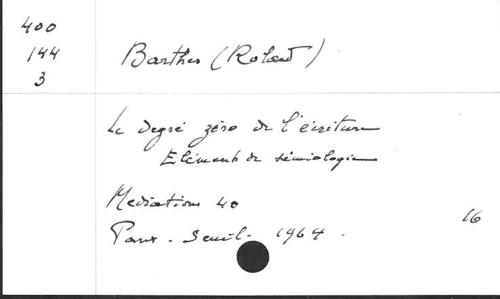 400
144
3
Barthes (Roland)
Le degré zéro de l'écriture
Eléments de sémiologie
Mediations 40
Paris - Seuil - 1964.
16